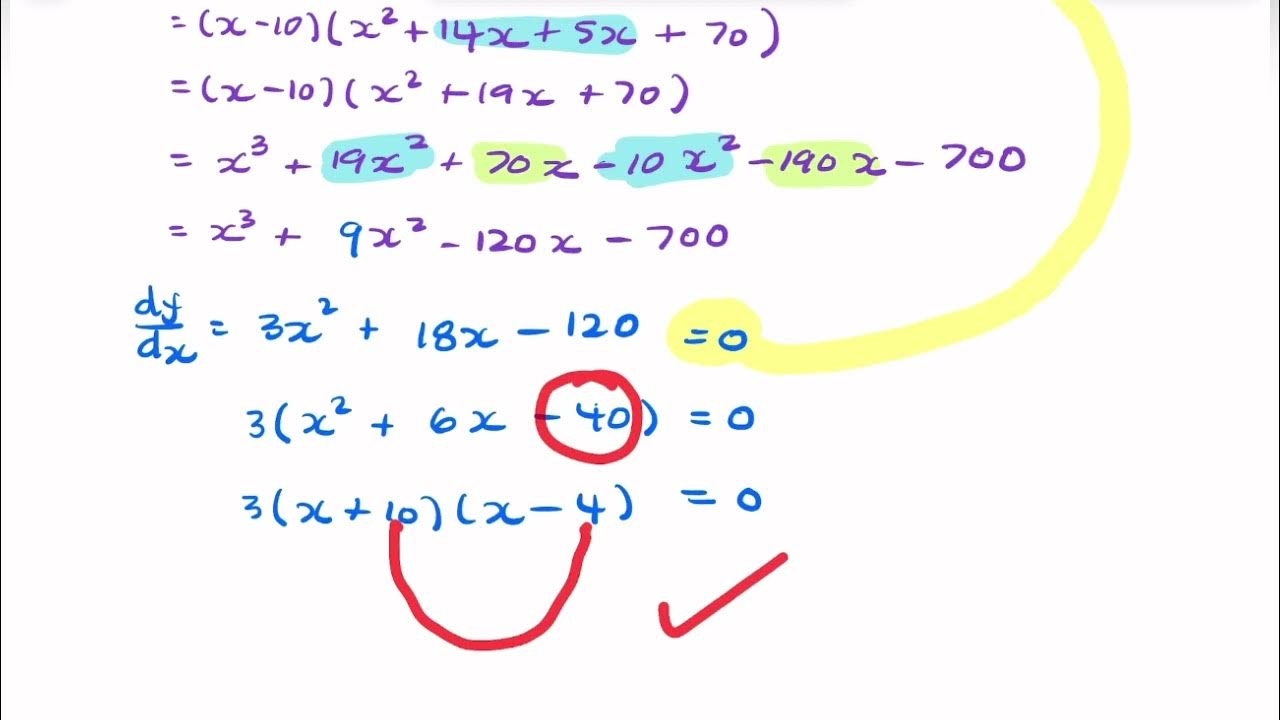 = (x - 10)(x² + 14x + 5x + 70)
= (x - 10)(x² + 19x + 70)
= x³ + 19x² + 70x - 10x² - 190x - 700
= x³ + 9x² - 120x - 700
dy/dx = 3x² + 18x - 120 = 0
3(x² + 6x - 40) = 0
3(x + 10)(x - 4) = 0